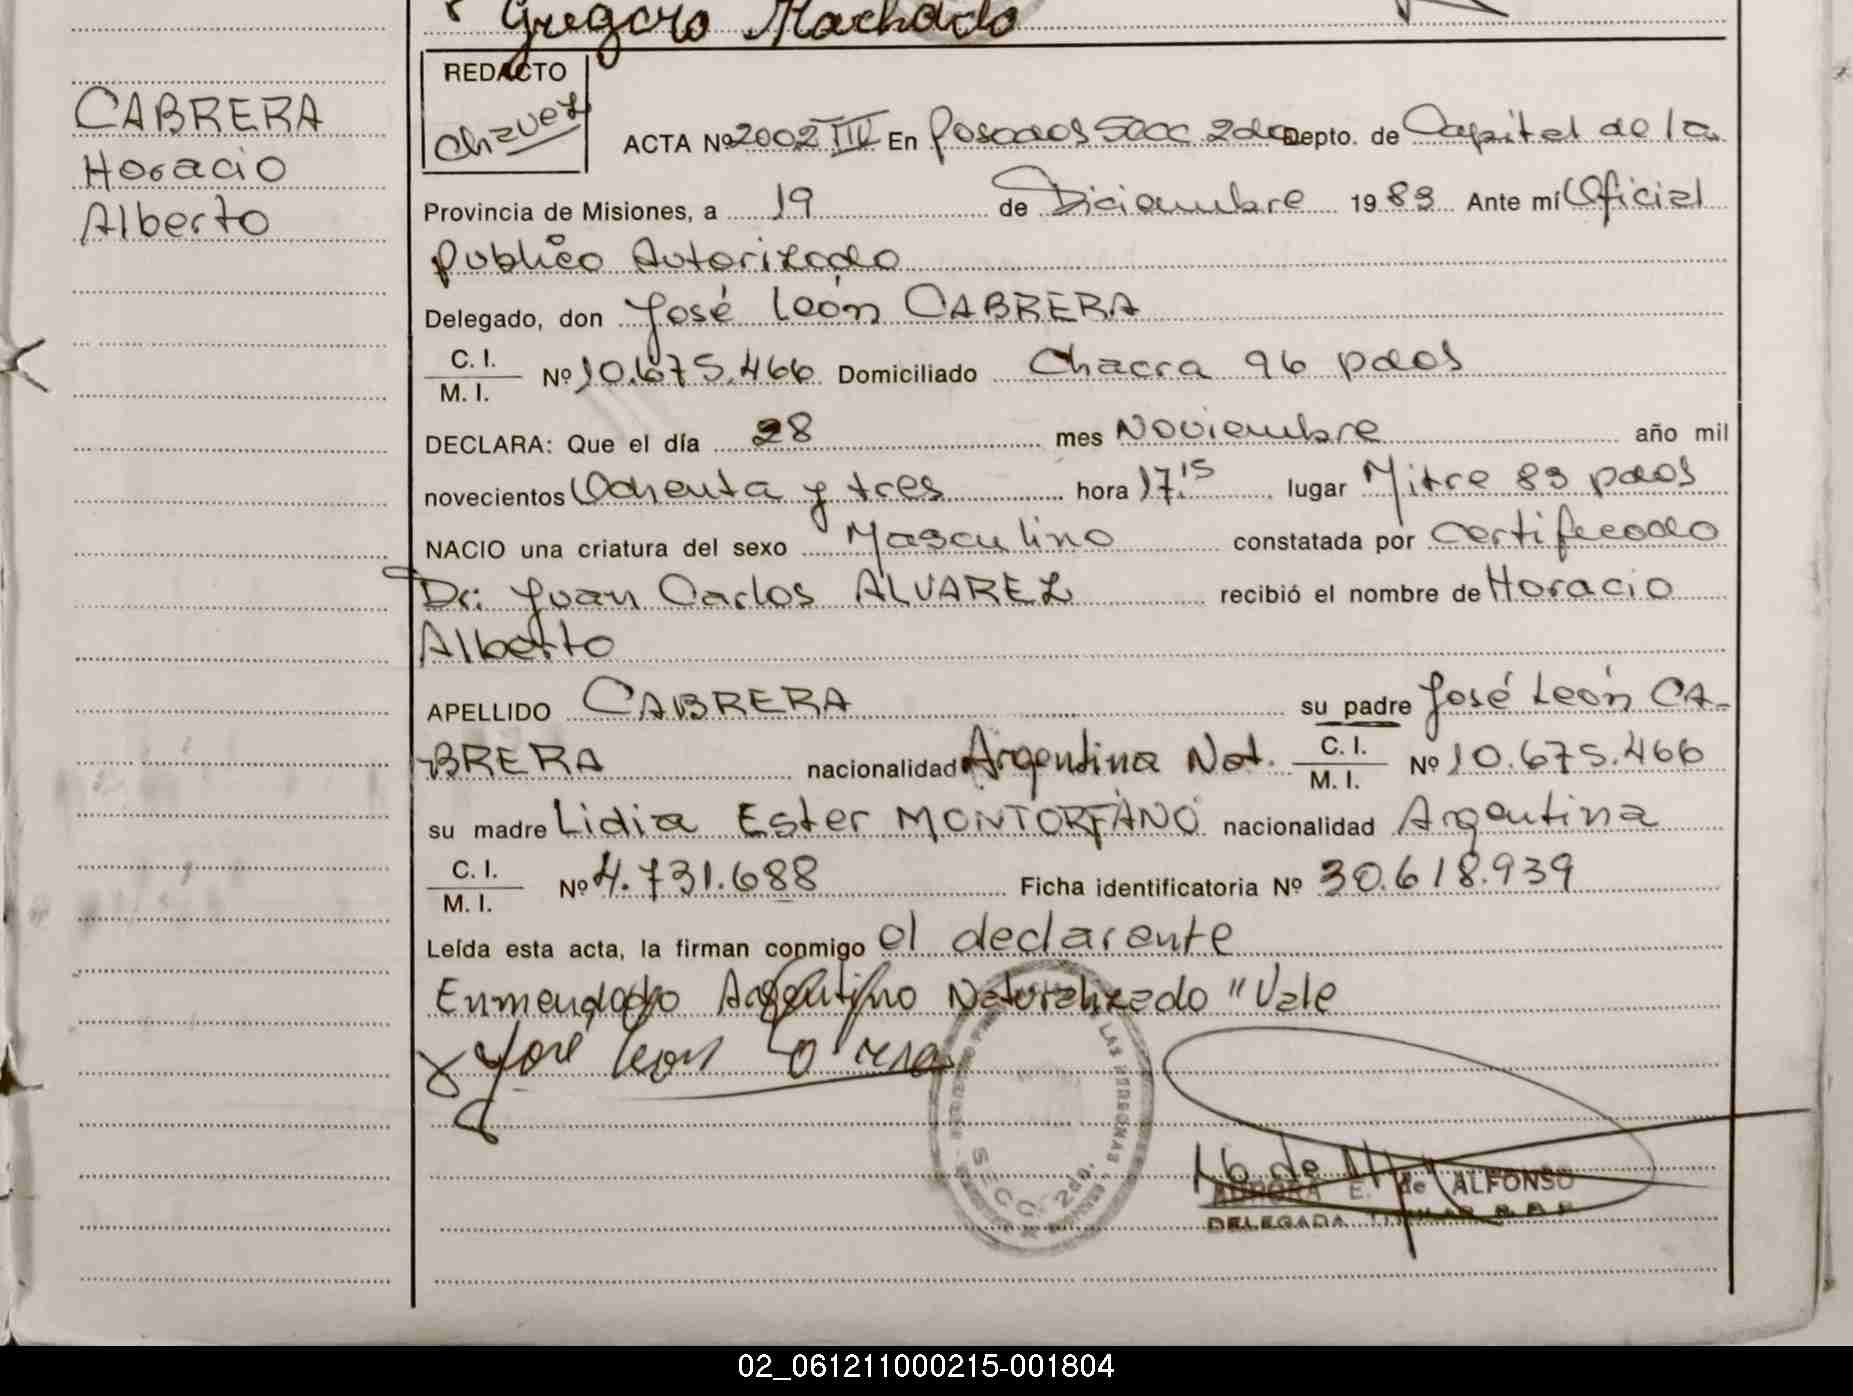 Gregorio Machado
REDACTO
Chavez
CABRERA
Horacio
Alberto
ACTA Nº 2002 TIV En Posadas Secc 2da Depto. de Capital de la
Provincia de Misiones, a 19 de Diciembre 1983 Ante mí Oficial
Publico Autorizado
Delegado, don José León CABRERA
C. I.
M. I. Nº 10.675.466 Domiciliado Chacra 96 pdas
DECLARA: Que el día 28 mes Noviembre año mil
novecientos Ochenta y tres hora 17.15 lugar Mitre 83 pdas
NACIO una criatura del sexo Masculino constatada por Certificado
Dr: Juan Carlos ALVAREZ recibió el nombre de Horacio
Alberto
APELLIDO CABRERA su padre José León CA-
BRERA nacionalidad Argentina Nat. C. I.
M. I. Nº 10.675.466
su madre Lidia Ester MONTORFANO nacionalidad Argentina
C. I.
M. I. Nº 4.731.688 Ficha identificatoria Nº 30.618.939
Leída esta acta, la firman conmigo el declarante
Enmendado Argentino Naturalizado "Vale
José León
LAS PERSONAS
SECC. 2da.
AURORA E. de ALFONSO
DELEGADA TITULAR
02_061211000215-001804